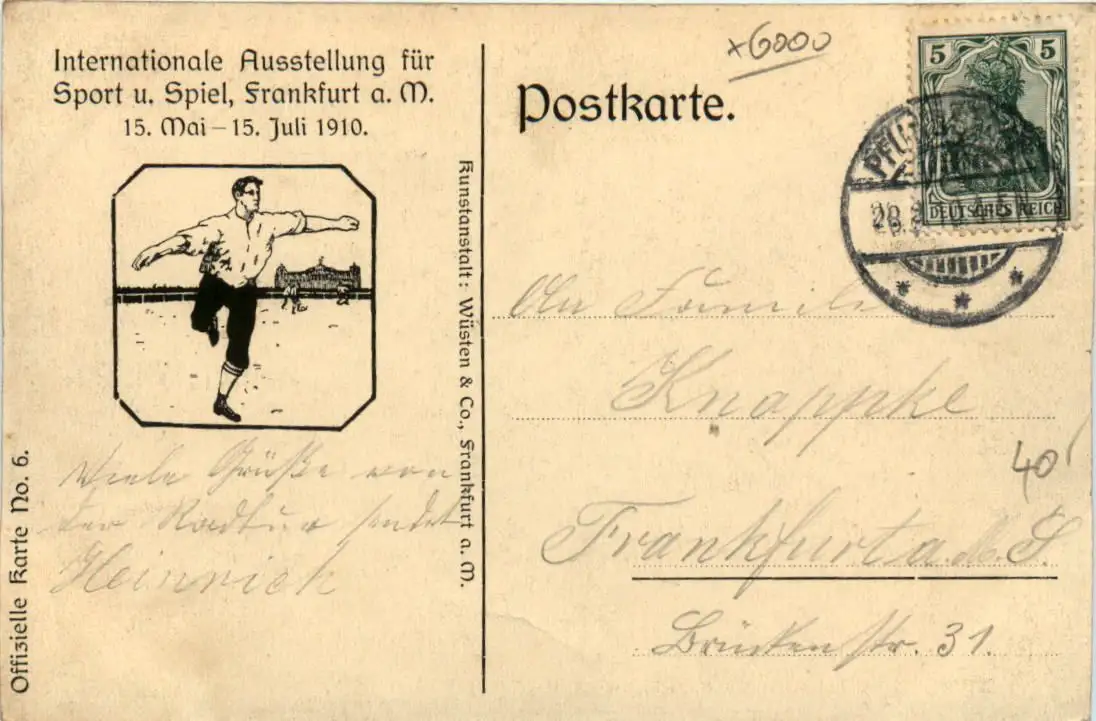 Internationale Ausstellung für
Sport u. Spiel, Frankfurt a. M.
15. Mai – 15. Juli 1910.
Offizielle Karte No. 6.
Viele Grüße von
der Radtur sendet
Heinrich
Kunstanstalt: Wüsten & Co., Frankfurt a. M.
x6000
Postkarte.
5 5
DEUTSCHES REICH
An Famili
Knappke
40
Frankfurt a. M. S.
Brückenstr. 31.